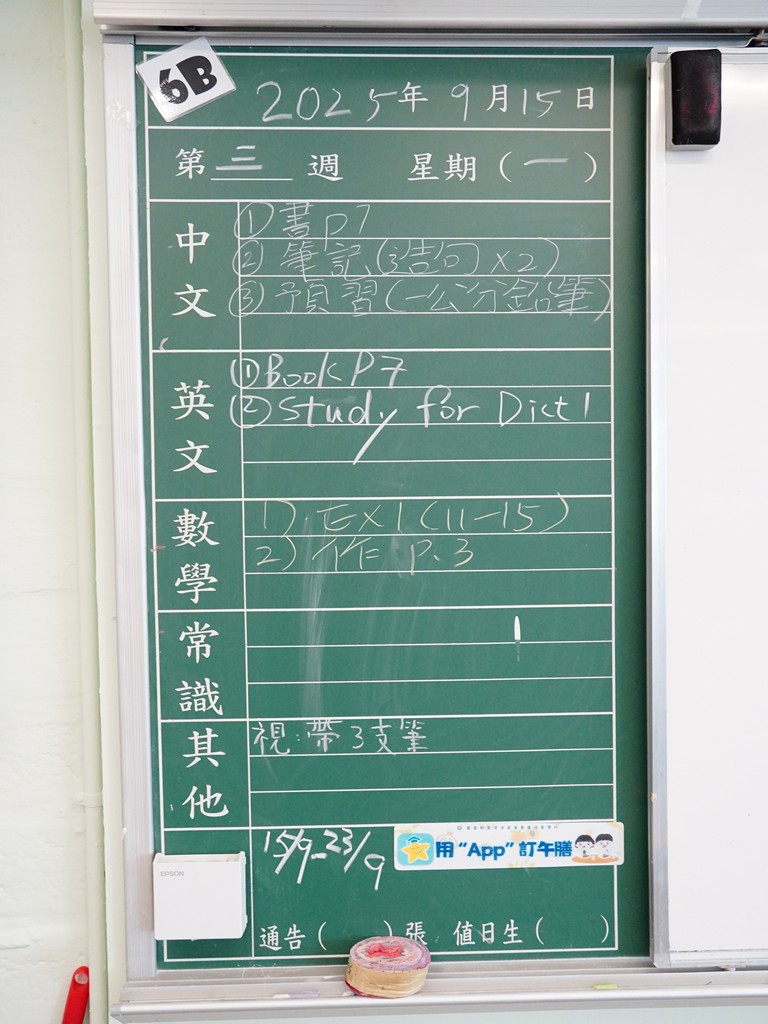 6B
2025年9月15日
第三週 星期(一)
中文
①書p7
②筆記(造句x2)
③預習(一公分鉛筆)
英文
①Book P7
②Study for Dict 1
數學
1) EX1(11-15)
2) 作 P.3
常識
其他
視:帶3支筆
15/9-23/9
用“App”訂午膳
EPSON
通告( )張 值日生( )